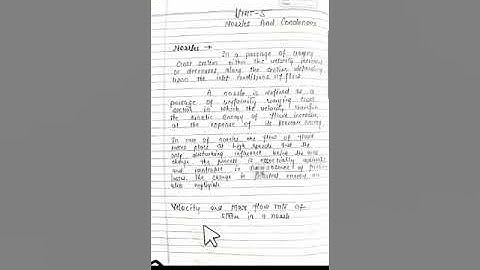 UNIT-5
Nozzles And Condensors
Nozzles →
In a passage of varying
cross section either the velocity increases
or decreases along the section depending
upon the inlet conditions of flow.
A nozzle is defined as a
passage of uniformly varying cross
section in which the velocity
the kinetic energy of fluid increases
at the expense of its pressure energy
In case of nozzles the flow of fluid
takes place at high speeds and the
only disturbing influence being the area
change the process is essentially adiabatic
and isentropic in absence of friction
losses. The change in potential energy are
also negligible.
Velocity and Mass flow rate of
steam in a nozzle